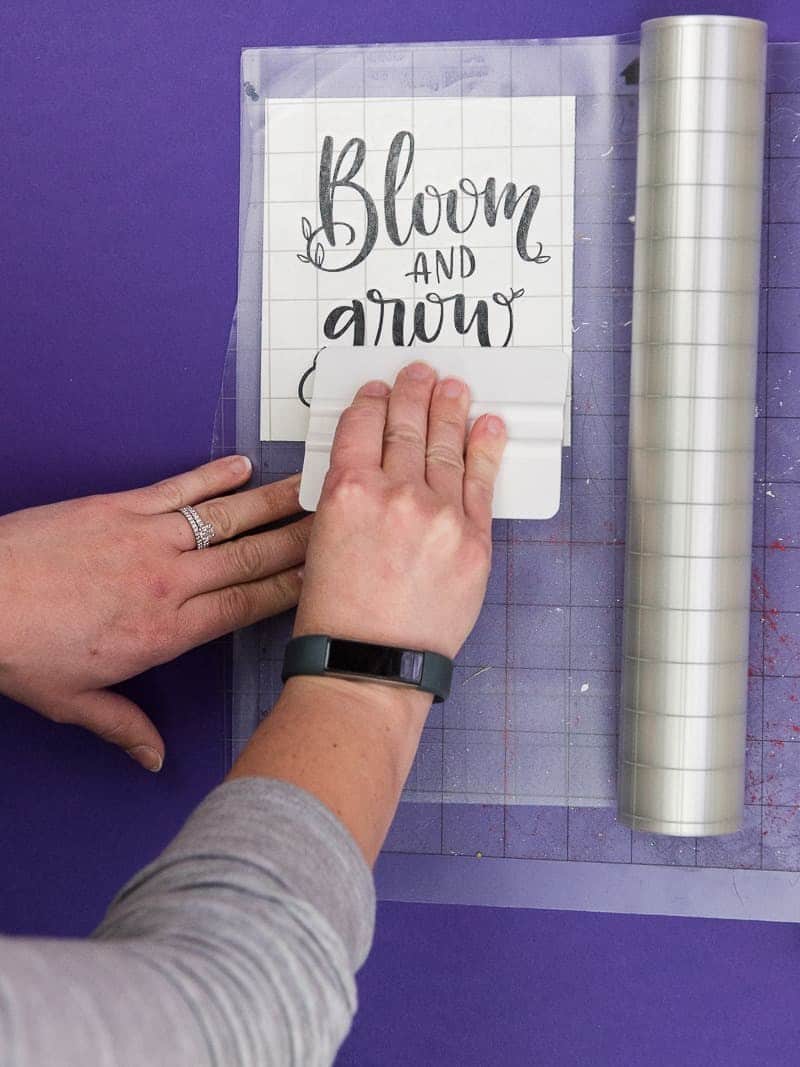 Bloom
AND
grow